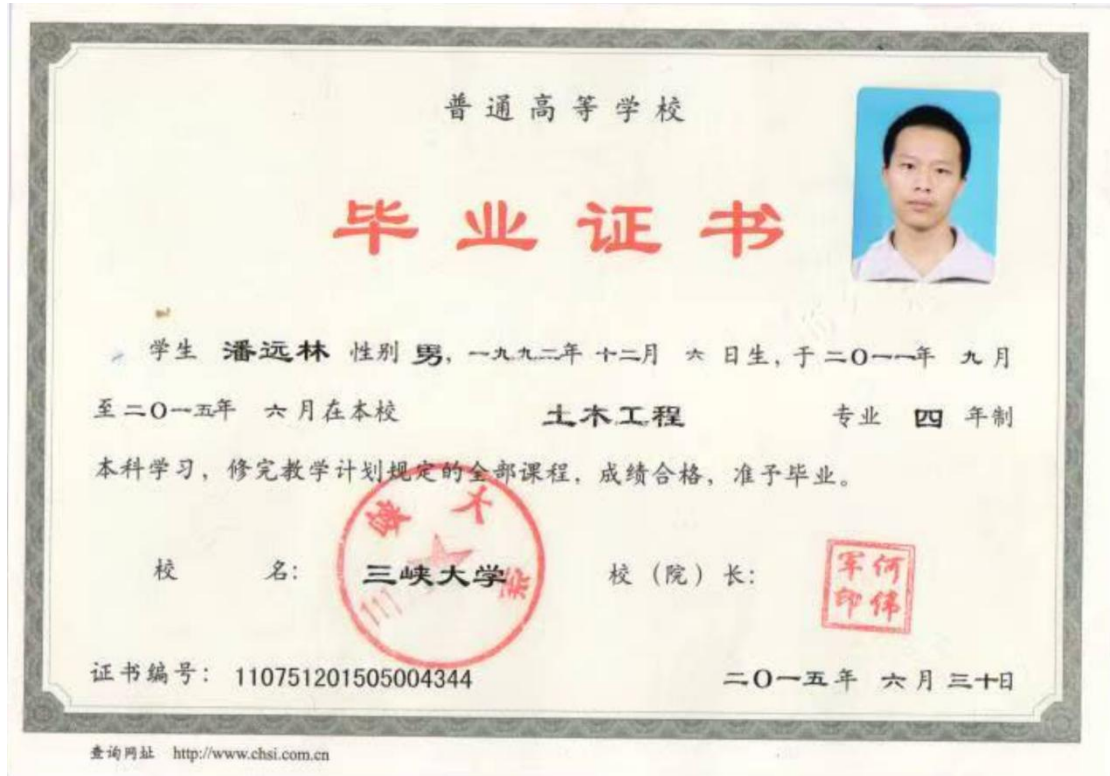 普通高等学校
毕业证书
学生 潘远林 性别 男，一九九二年 十二月 六 日生，于二〇一一年 九月
至二〇一五年 六月在本校 土木工程 专业 四 年制
本科学习，修完教学计划规定的全部课程，成绩合格，准予毕业。
校 名： 三峡大学 校（院）长：
何伟军印
证书编号： 110751201505004344 二〇一五年 六月三十日
查询网址 http://www.chsi.com.cn